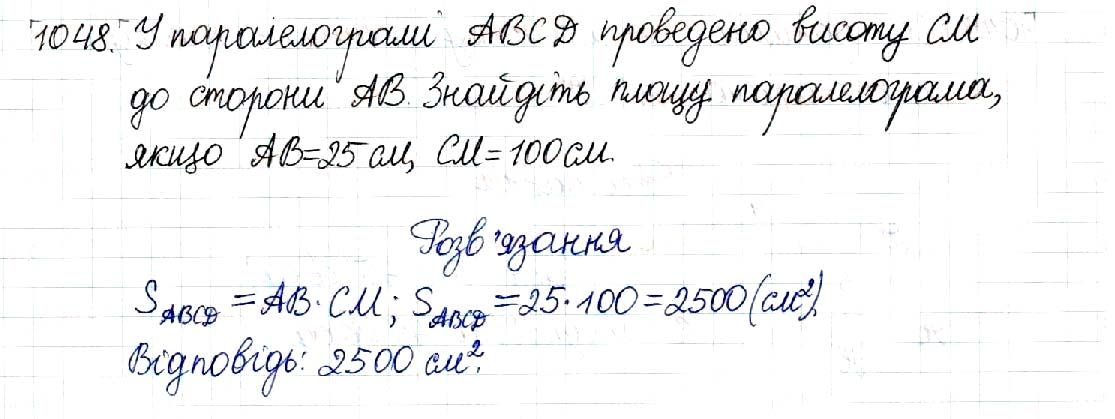 1048. У паралелограмі ABCD проведено висоту CM
до сторони AB. Знайдіть площу паралелограма,
якщо AB=25 см, CM=100 см.
Розв'язання
S_ABCD = AB · CM; S_ABCD = 25·100 = 2500 (см²).
Відповідь: 2500 см².